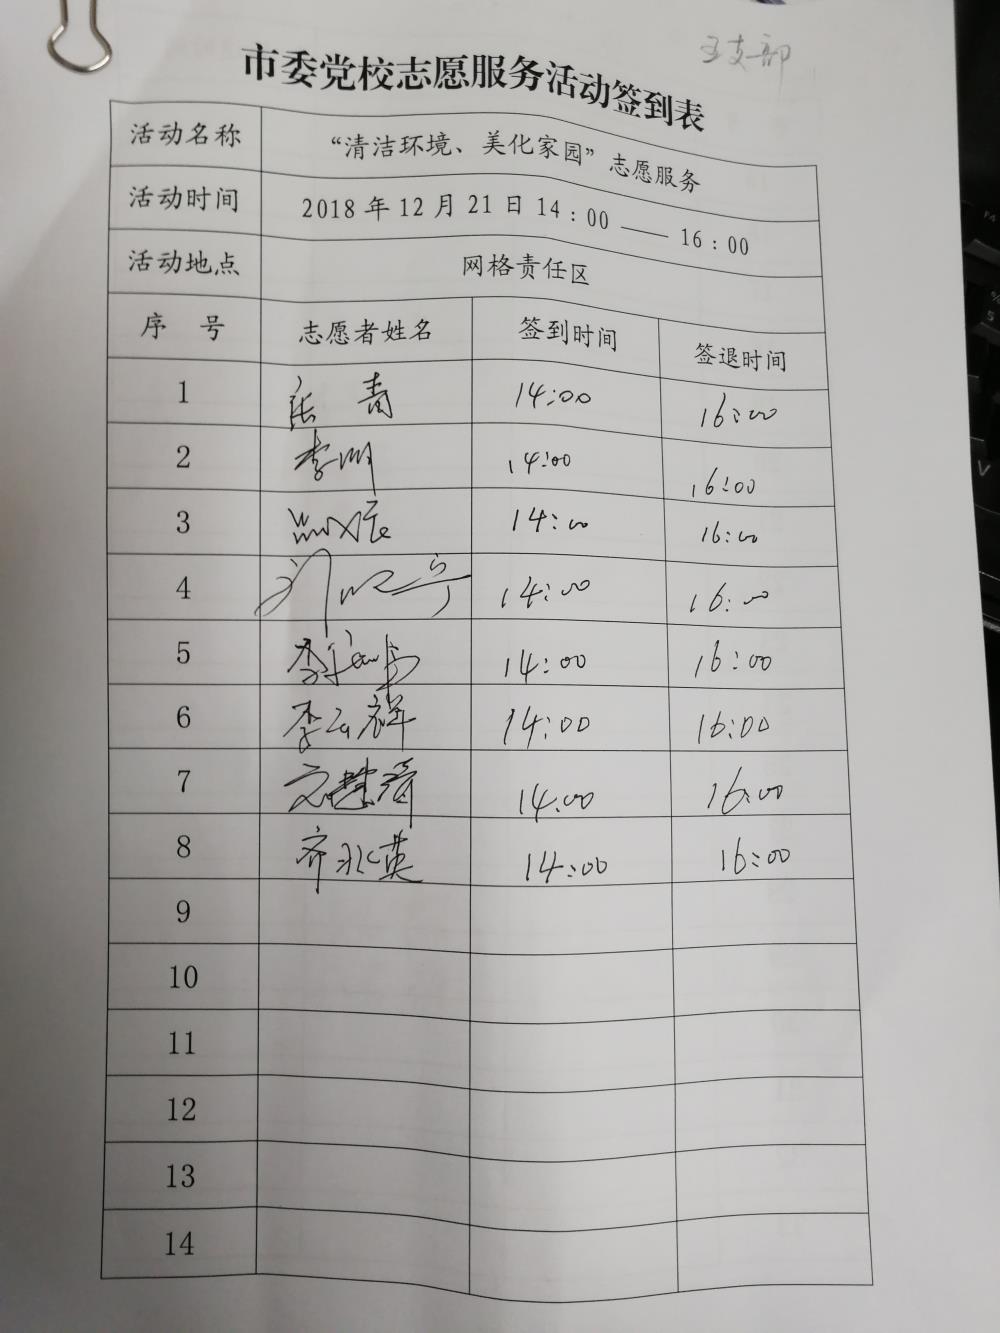 支部
市委党校志愿服务活动签到表
活动名称 “清洁环境、美化家园”志愿服务
活动时间 2018年12月21日14：00——16：00
活动地点 网格责任区
序 号 志愿者姓名 签到时间 签退时间
1 张青 14:00 16:00
2 李明 14:00 16:00
3 14:00 16:00
4 14:00 16:00
5 李 14:00 16:00
6 李云祥 14:00 16:00
7 14:00 16:00
8 齐永英 14:00 16:00
9
10
11
12
13
14